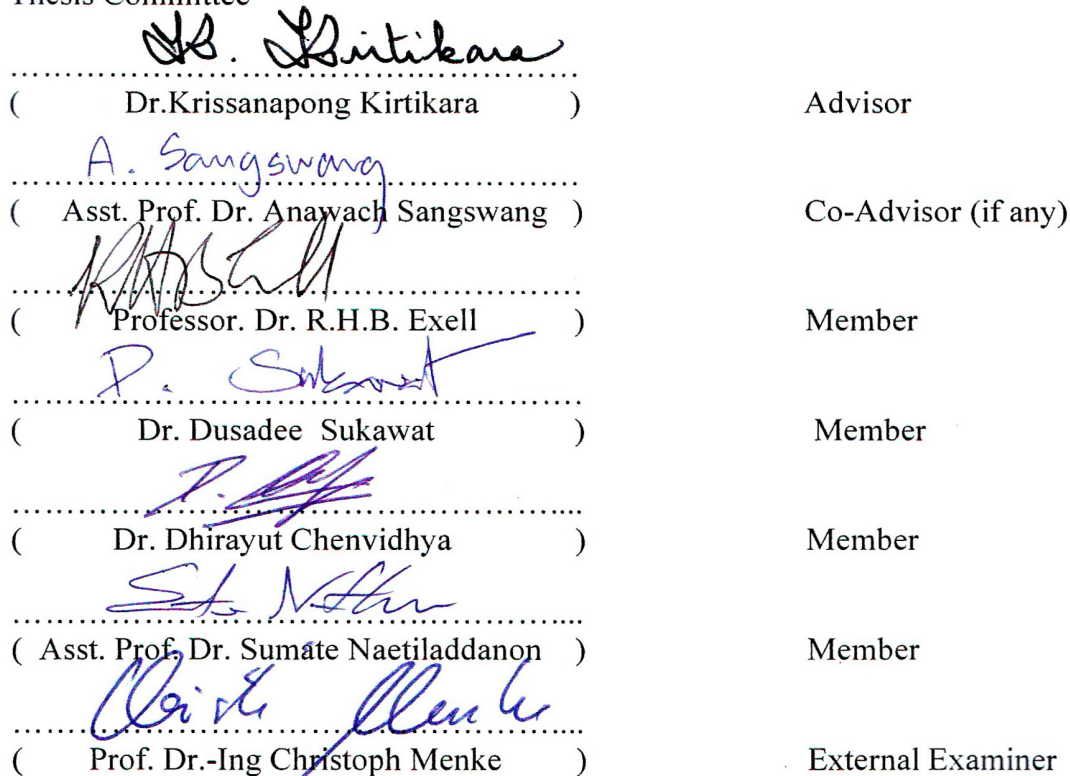 Thesis Committee
K. Kirtikara
( Dr.Krissanapong Kirtikara ) Advisor
A. Sangswang
( Asst. Prof. Dr. Anawach Sangswang ) Co-Advisor (if any)
( Professor. Dr. R.H.B. Exell ) Member
D. Sukawat
( Dr. Dusadee Sukawat ) Member
( Dr. Dhirayut Chenvidhya ) Member
( Asst. Prof. Dr. Sumate Naetiladdanon ) Member
( Prof. Dr.-Ing Christoph Menke ) External Examiner